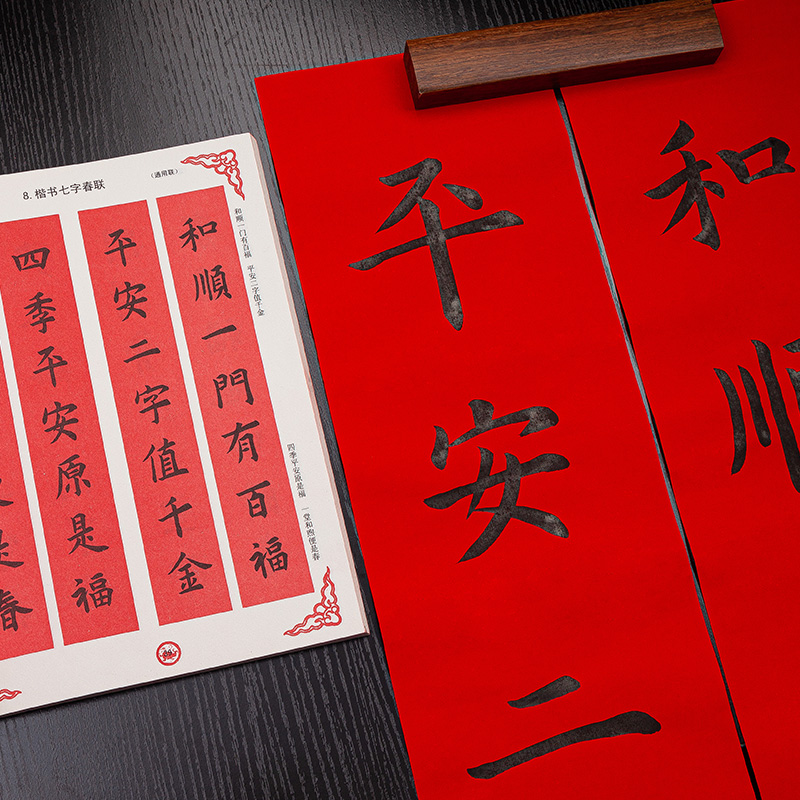 8.楷书七字春联
(通用联)
和順一門有百福
平安二字值千金
四季平安原是福
是春
和顺一门有百福 平安二字值千金
四季平安原是福 一堂和煦便是春
和順
平安二